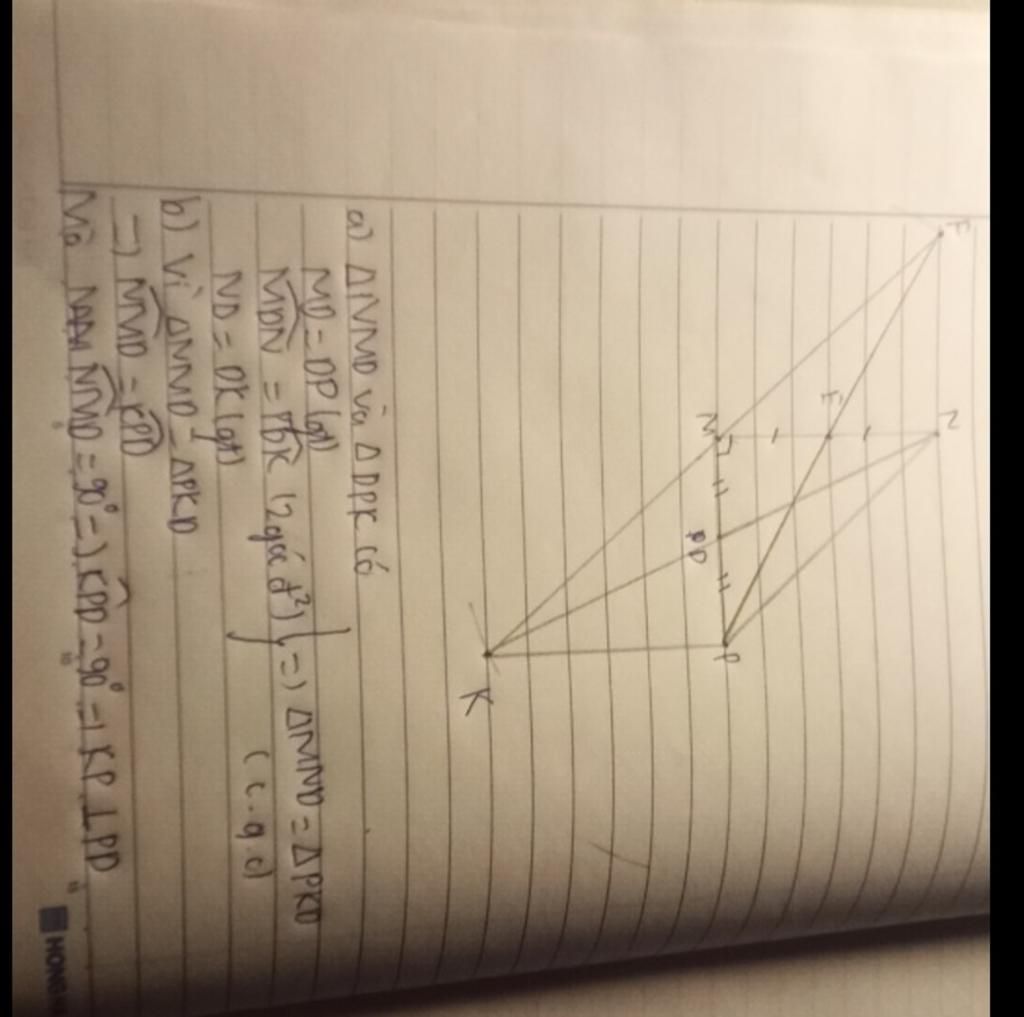 F
E
N
M
D
P
K
a) ΔNMD và ΔDPK có
MD = DP (gt)
MDN = PDK (2 góc đ²) } => ΔMND = ΔPKD
ND = DK (gt) (c.g.c)
b) Vì ΔNMD = ΔPKD
=> NMD = KPD
Mà NMD = 90° => KPD = 90° => KP ⊥ PD
5
10
15
HONG